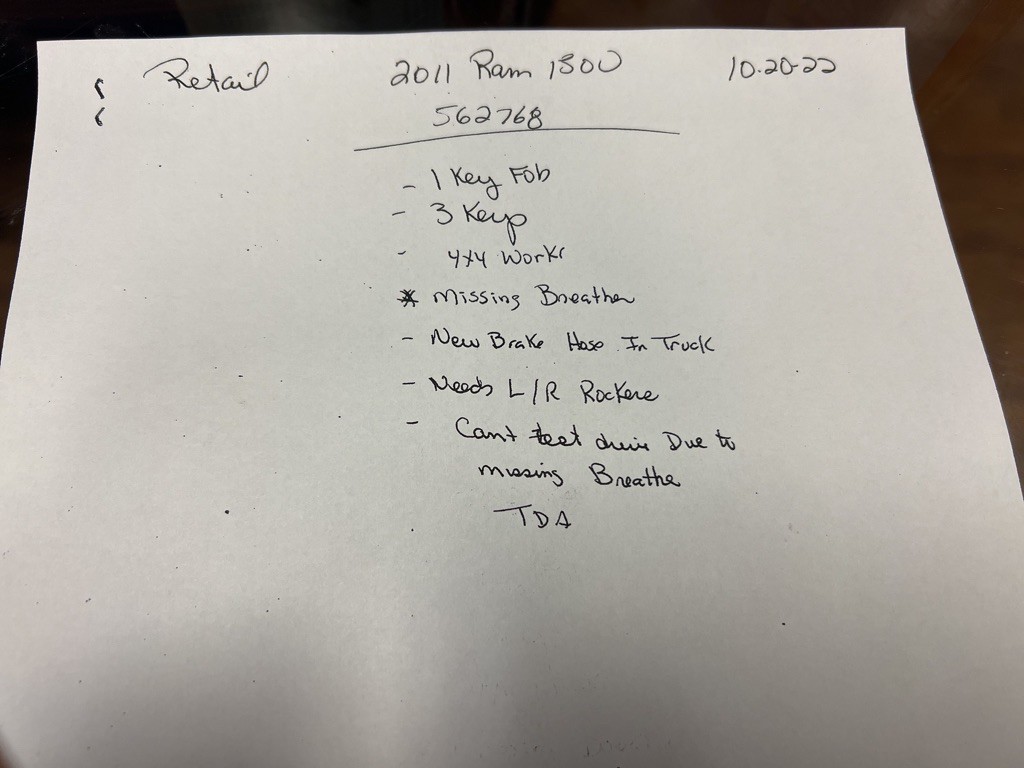 Retail 2011 Ram 1500 10-20-22
562768
- 1 Key Fob
- 3 Keys
- 4x4 Works
* Missing Breather
- New Brake Hose In Truck
- Needs L/R Rockers
- Can't test drive Due to
missing Breather
TDA